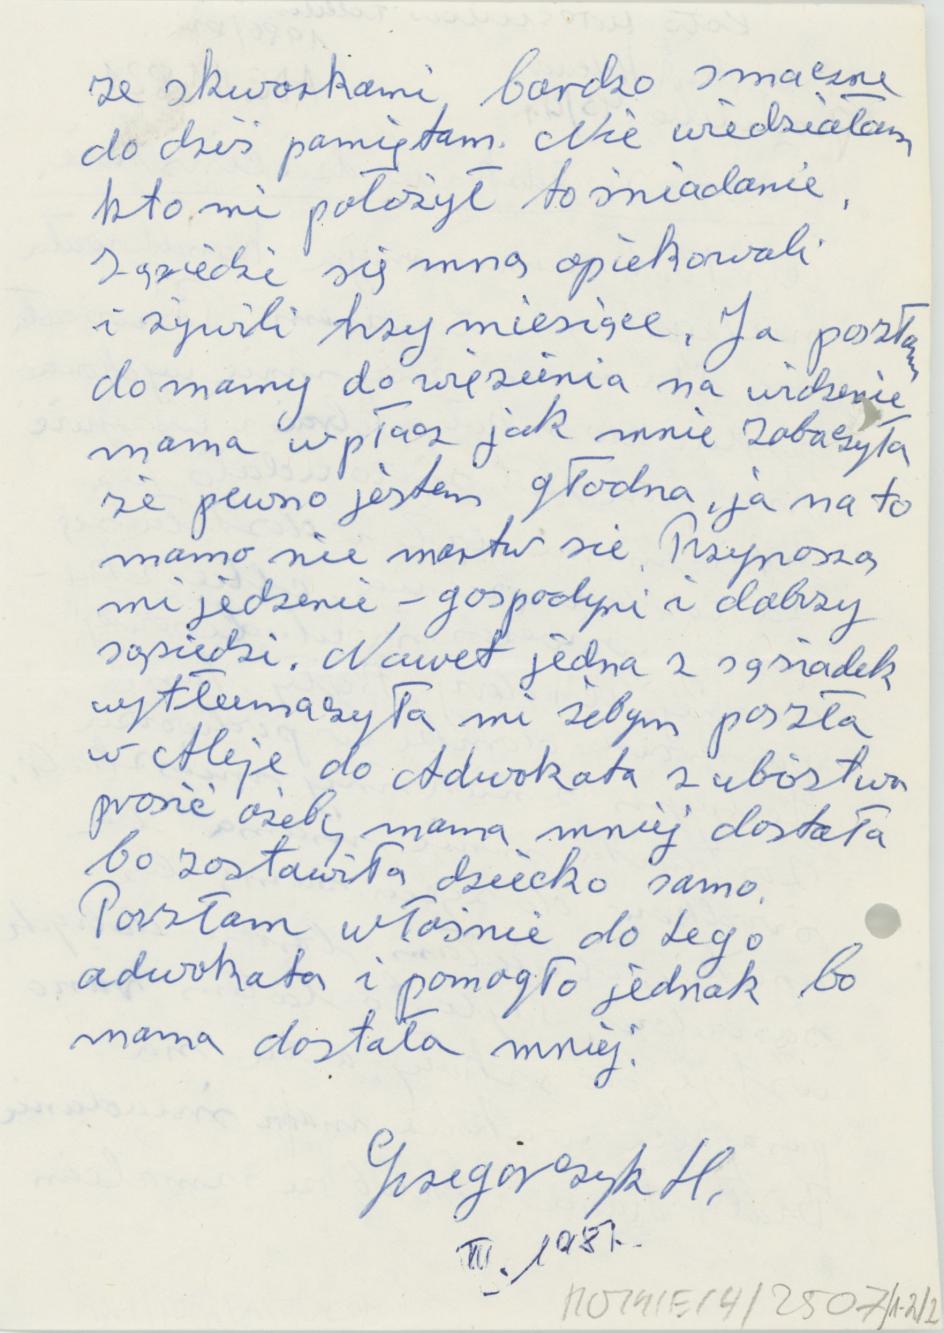 ze skwarkami, bardzo smaczne
do dziś pamiętam. Nie wiedziałam
kto mi położył to śniadanie,
Sąsiedzi się mną opiekowali
i żywili trzy miesiące. Ja poszłam
do mamy do więzienia na widzenie
mama w płacz jak mnie zobaczyła
że pewno jestem głodna, ja na to
mamo nie martw sie. Przynoszą
mi jedzenie – gospodyni i dobrzy
sąsiedzi. Nawet jedna z sąsiadek
wytłumaczyła mi żebym poszła
w Aleje do Adwokata z ubóstwa
prosić ażeby mama mniej dostała
bo zostawiła dziecko samo.
Poszłam właśnie do tego
adwokata i pomogło jednak bo
mama dostała mniej.
Grzegorczyk H.
III. 1987.
2507/1-2/2